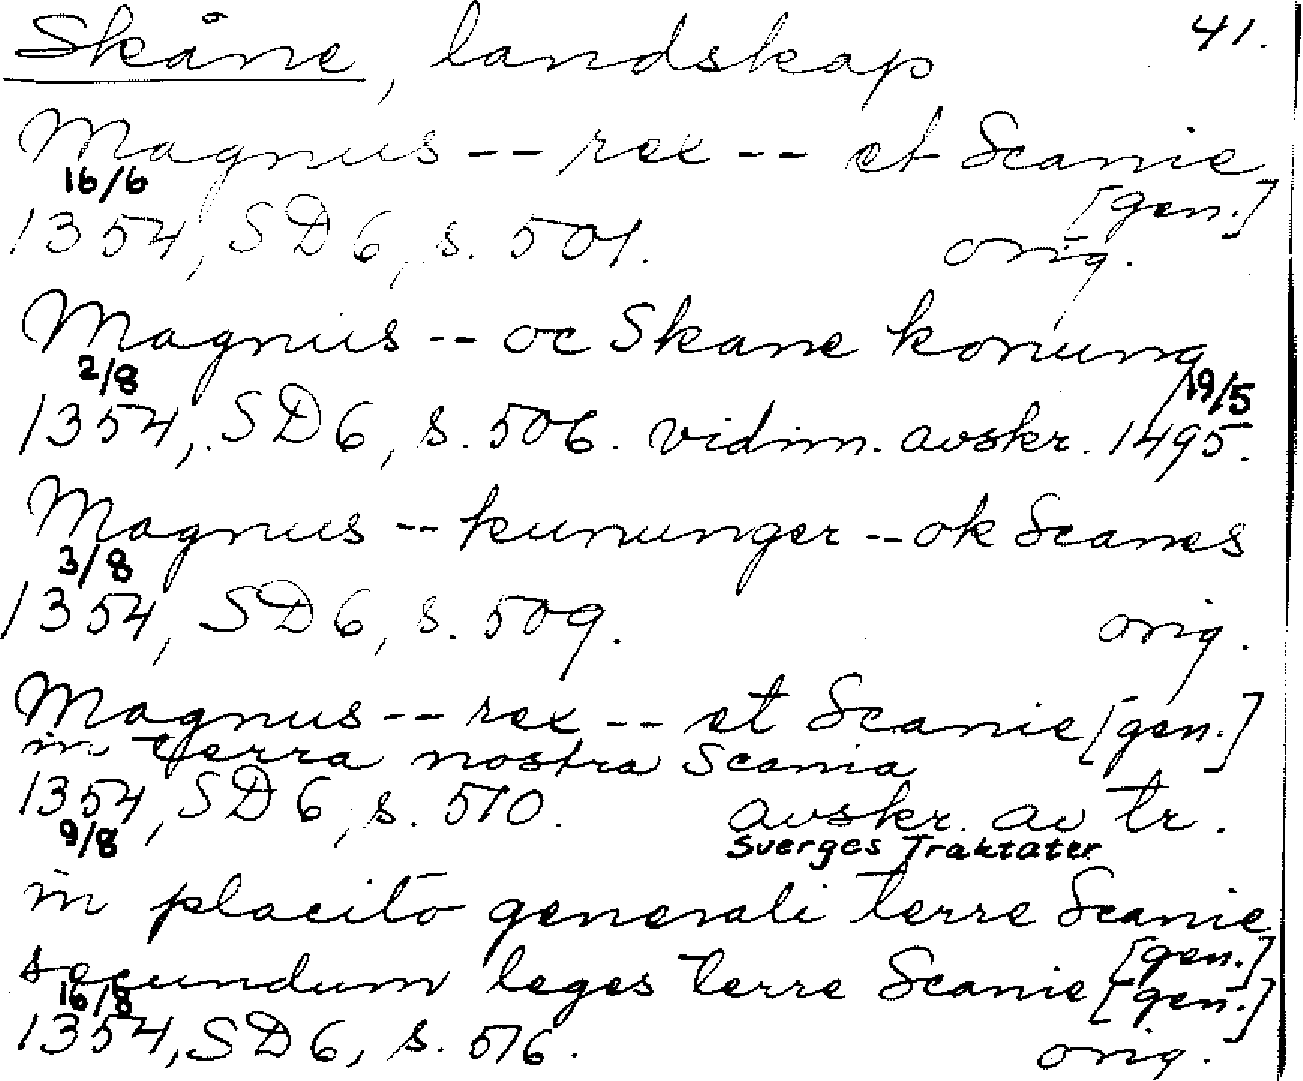 Skåne, landskap 41.
Magnus -- rex -- et Scanie
[gen.]
16/6
1354, SD 6, s. 501. orig.
Magnus -- oc Skane konung
2/8 19/5
1354, SD 6, s. 506. vidim. avskr. 1495.
Magnus -- kununger -- ok Scanes
3/8
1354, SD 6, s. 509. orig.
Magnus -- rex -- et Scanie [gen.]
in terra nostra Scania
1354, SD 6, s. 510. avskr. av tr.
9/8 Sverges Traktater
in placito generali terre Scanie
[gen.]
secundum leges terre Scanie [gen.]
16/8
1354, SD 6, s. 516. orig.